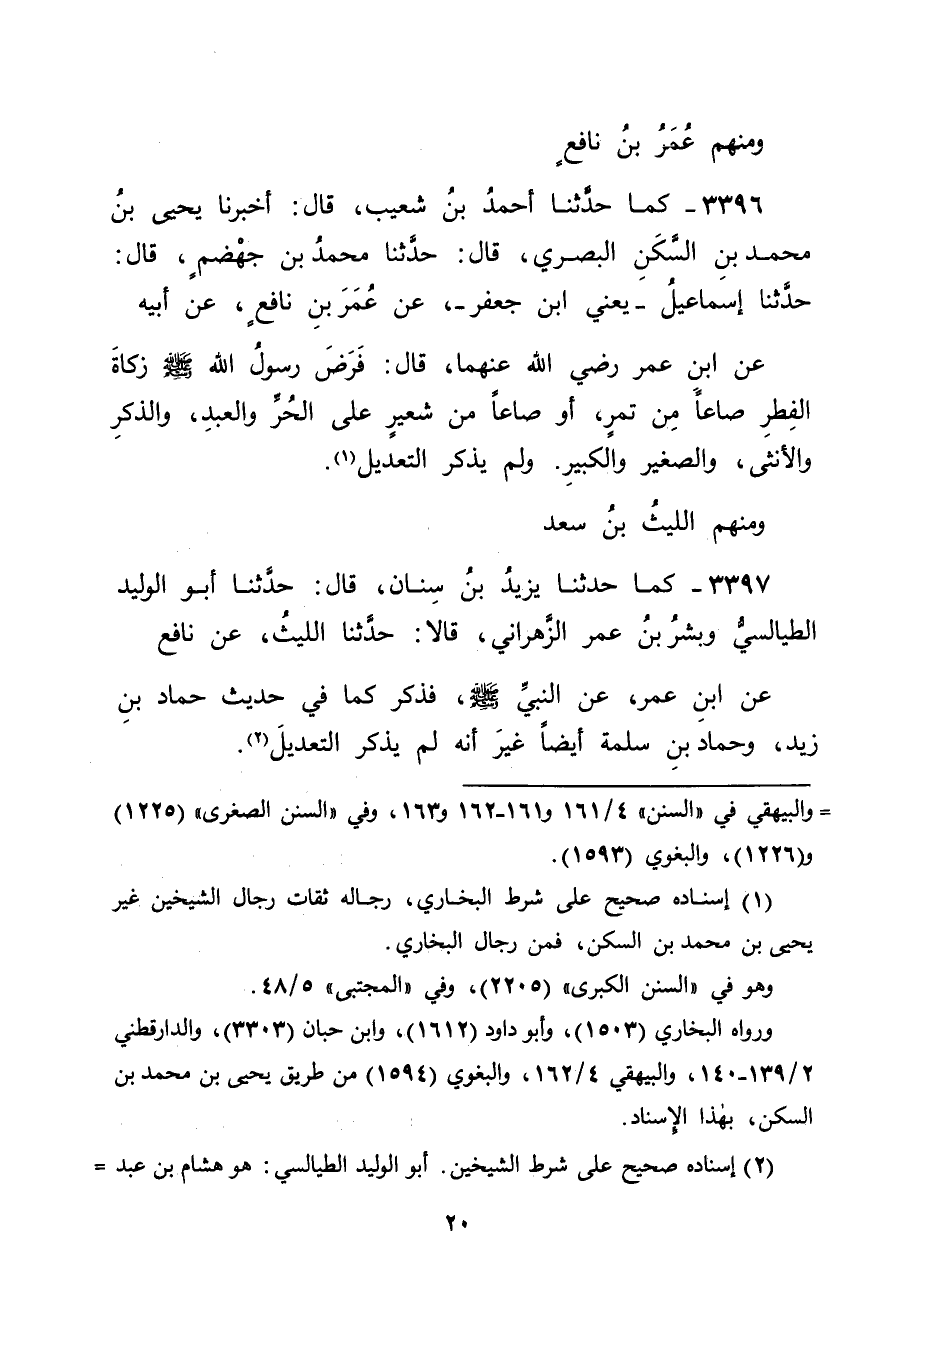 ومنهم عُمَرُ بنُ نافعٍ
٣٣٩٦ـ كما حدَّثنا أحمدُ بنُ شعيب، قال: أخبرنا يحيى بنُ
محمد بنِ السَّكَنِ البصري، قال: حدَّثنا محمدُ بن جهْضمٍ، قال:
حدَّثنا إسماعيلُ ـ يعني ابن جعفر ـ، عن عُمَرَ بنِ نافعٍ، عن أبيه
عن ابن عمر رضي الله عنهما، قال: فَرَضَ رسولُ الله ﷺ زكاةَ
الفِطرِ صاعاً مِن تمرٍ، أو صاعاً من شعيرٍ على الحُرِّ والعبدِ، والذكرِ
والأنثى، والصغير والكبيرِ. ولم يذكر التعديل(١).
ومنهم الليثُ بنُ سعد
٣٣٩٧ـ كما حدثنا يزيدُ بنُ سِنان، قال: حدَّثنا أبو الوليد
الطيالسيُّ وبشرُ بنُ عمر الزَّهراني، قالا: حدَّثنا الليثُ، عن نافع
عن ابنِ عمر، عن النبيِّ ﷺ، فذكر كما في حديث حماد بنِ
زيد، وحماد بنِ سلمة أيضاً غيرَ أنه لم يذكر التعديلَ(٢).
= والبيهقي في «السنن» ١٦١/٤ و١٦١ـ١٦٢ و١٦٣، وفي «السنن الصغرى» (١٢٢٥)
و(١٢٢٦)، والبغوي (١٥٩٣).
(١) إسناده صحيح على شرط البخاري، رجاله ثقات رجال الشيخين غير
يحيى بن محمد بن السكن، فمن رجال البخاري.
وهو في «السنن الكبرى» (٢٢٠٥)، وفي «المجتبى» ٤٨/٥.
ورواه البخاري (١٥٠٣)، وأبو داود (١٦١٢)، وابن حبان (٣٣٠٣)، والدارقطني
١٣٩/٢ـ١٤٠، والبيهقي ١٦٢/٤، والبغوي (١٥٩٤) من طريق يحيى بن محمد بن
السكن، بهٰذا الإسناد.
(٢) إسناده صحيح على شرط الشيخين. أبو الوليد الطيالسي: هو هشام بن عبد =
٢٠